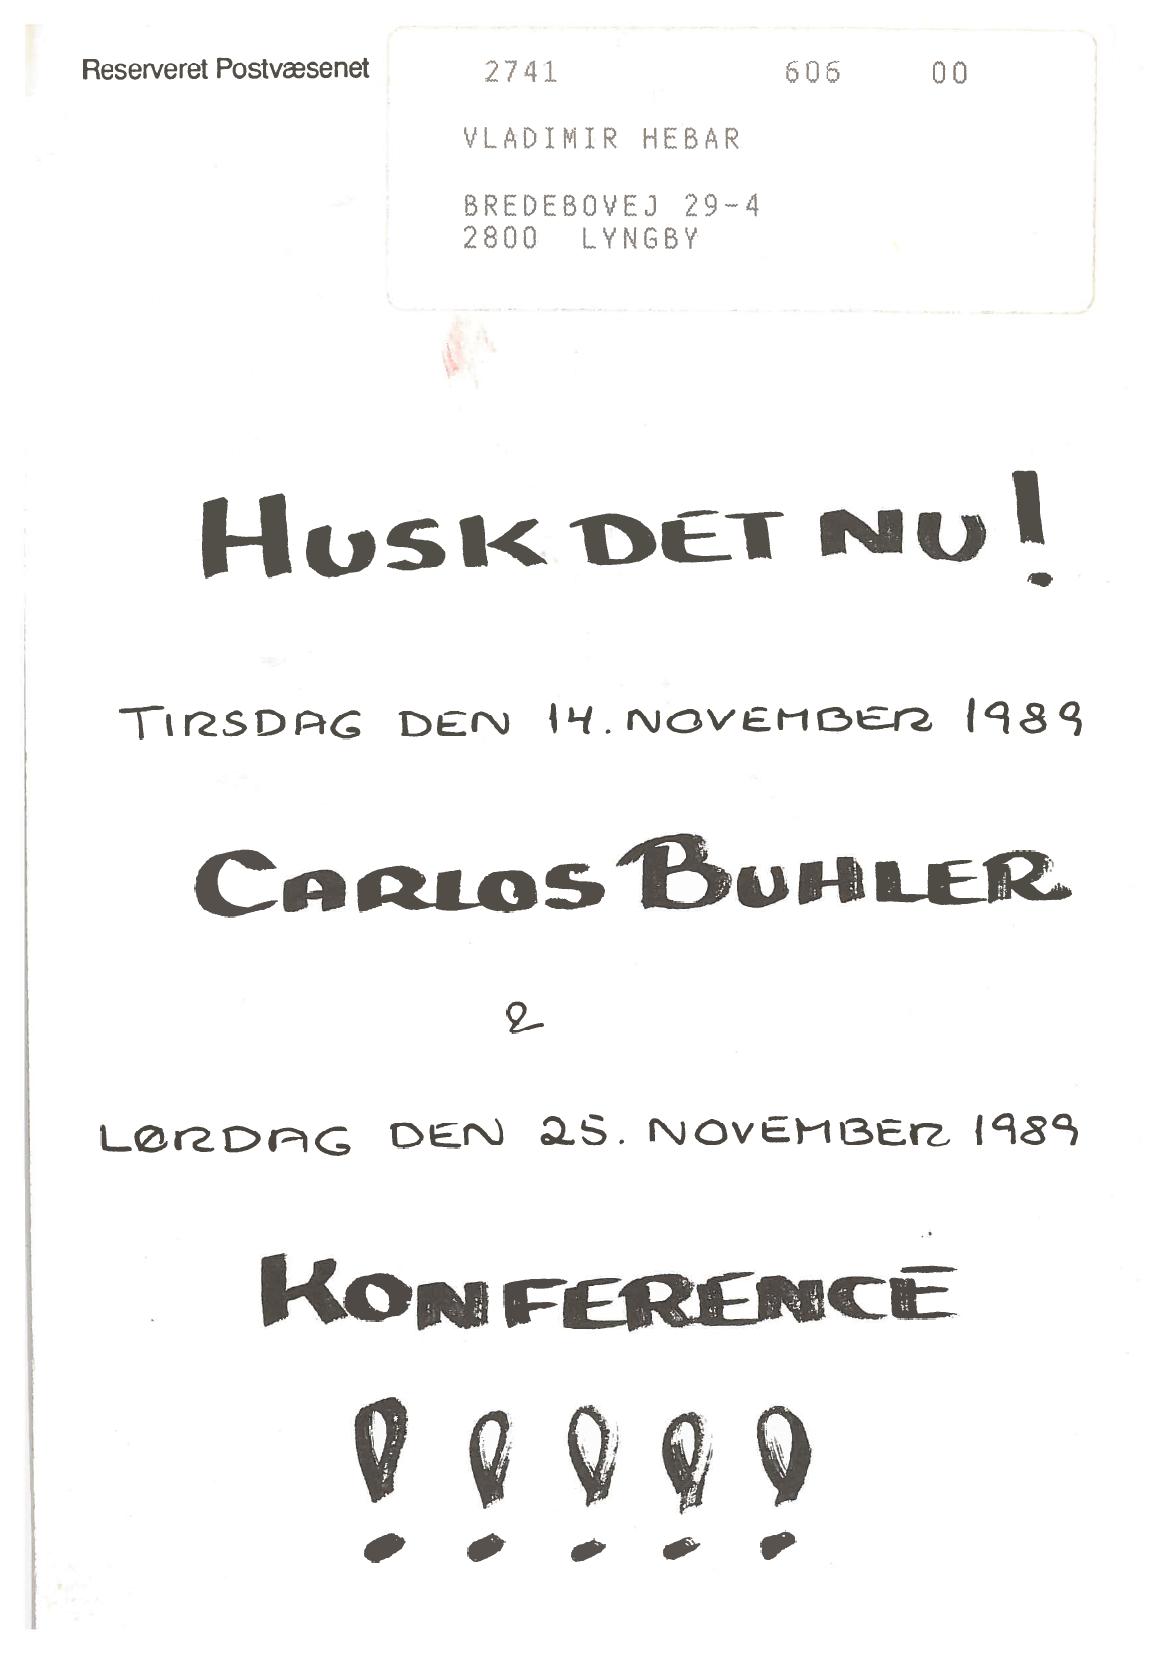 Reserveret Postvæsenet
2741 606 00
VLADIMIR HEBAR
BREDEBOVEJ 29-4
2800 LYNGBY
HUSK DET NU!
TIRSDAG DEN 14. NOVEMBER 1989
CARLOS BUHLER
&
LØRDAG DEN 25. NOVEMBER 1989
KONFERENCE
!!!!!